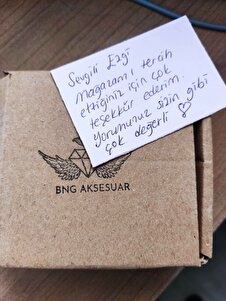 Sevgili Ezgi
Mağazamı tercih
ettiğiniz için çok
teşekkür ederim.
Yorumunuz sizin gibi
çok değerli
BNG AKSESUAR